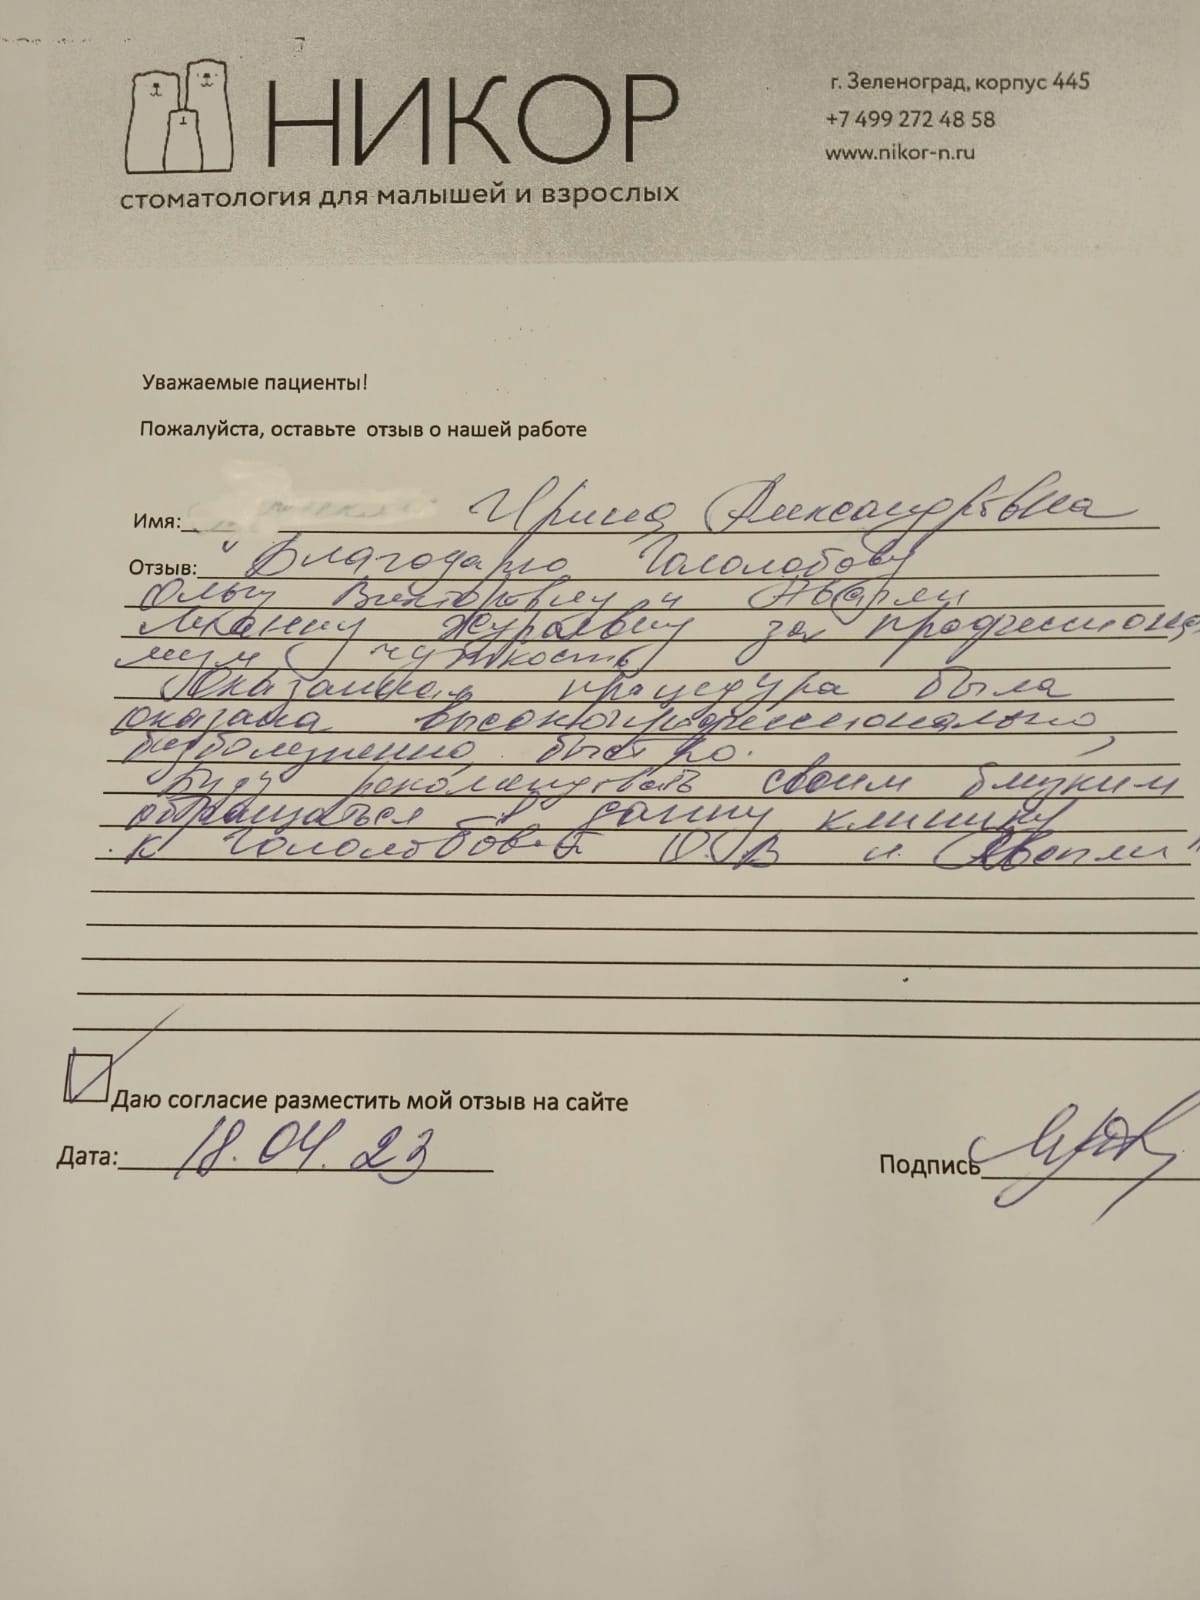 НИКОР
стоматология для малышей и взрослых
г. Зеленоград, корпус 445
+7 499 272 48 58
www.nikor-n.ru
Уважаемые пациенты!
Пожалуйста, оставьте отзыв о нашей работе
Имя: Ирина Александровна
Отзыв: "Благодарю Гололобову
Ольгу Викторовну и
Журавеву за профессиона
лизм, чуткость
Оказанная процедура была
оказана высокопрофессионально,
безболезненно, быстро.
Буду рекомендовать своим близким
обращаться в данну клинику
к Гололобовой О.В и
Даю согласие разместить мой отзыв на сайте
Дата: 18.04.23
Подпись